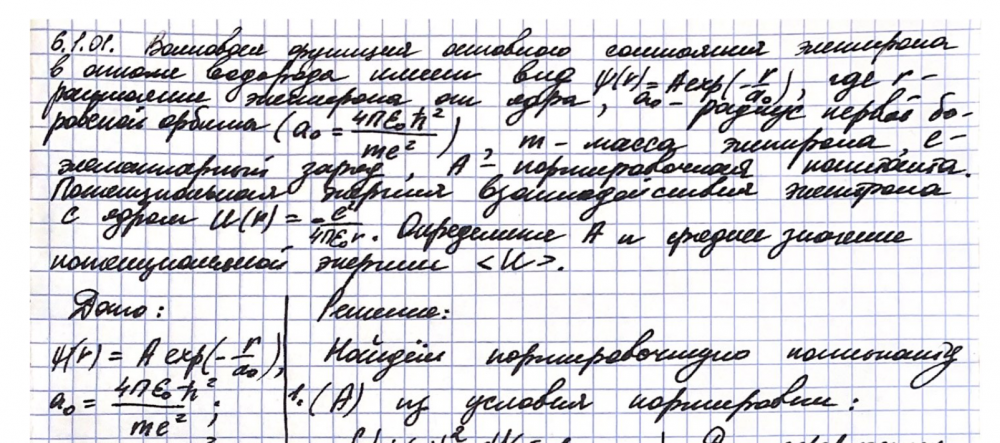 6.1.01. Волновая функция основного состояния электрона
в атоме водорода имеет вид ψ(r) = A exp(-r/a₀), где r -
расстояние электрона от ядра, a₀ - радиус первой бо-
ровской орбиты (a₀ = 4πε₀ħ²/me²), m - масса электрона, e -
элементарный заряд, A - нормировочная константа.
Потенциальная энергия взаимодействия электрона
с ядром U(r) = -e²/4πε₀r. Определите A и среднее значение
потенциальной энергии <U>.
Дано:
ψ(r) = A exp(-r/a₀),
a₀ = 4πε₀ħ²/me²;
Решение:
Найдём нормировочную константу
1. (A) из условия нормировки: